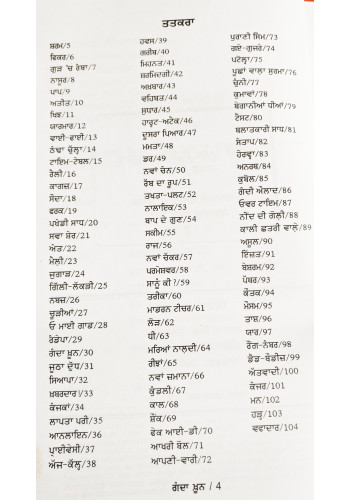 ਤਤਕਰਾ
ਸ਼ਰਮ/5
ਫਿਕਰ/6
ਗੁੜ 'ਚ ਰੰਬਾ/7
ਨਾਸੂਰ/8
ਪਾਪ/9
ਅਤੀਤ/10
ਖਿਝ/11
ਯਾਰਮਾਰ/12
ਵਾਈ-ਵਾਈ/13
ਠੰਢਾ ਚੁੱਲ੍ਹਾ/14
ਟਾਇਮ-ਟੇਬਲ/15
ਰੈਲੀ/16
ਕਾਗਜ਼/17
ਸੌਦਾ/18
ਫਰਕ/19
ਪਖੰਡੀ ਸਾਧ/20
ਸਵਾ ਸ਼ੇਰ/21
ਅੰਤ/22
ਮੈਲੀ/23
ਜੁਗਾੜ/24
ਗਿੱਲੀ-ਲੱਕੜੀ/25
ਨਬਜ਼/26
ਚੂੜੀਆਂ/27
ਓ ਮਾਈ ਗਾਡ/28
ਰੰਡੇਪਾ/29
ਗੰਦਾ ਖ਼ੂਨ/30
ਜੂਠਾ ਦੁੱਧ/31
ਸਿਆਪਾ/32
ਖ਼ਬਰਦਾਰ।/33
ਕੰਜਕਾਂ/34
ਲਾਪਤਾ ਪਰੀ/35
ਆਨਲਾਇਨ/36
ਪ੍ਰਾਈਵੇਸੀ/37
ਅੱਜ-ਕੱਲ੍ਹ/38
ਹਵਸ/39
ਗਰੀਬ/40
ਮਿਹਨਤ/41
ਸ਼ਰਮਿੰਦਗੀ/42
ਅਖ਼ਬਾਰ/43
ਦਹਿਸ਼ਤ/44
ਸੁਧਾਰ/45
ਹਾਰਟ-ਅਟੈਕ/46
ਦੂਸਰਾ ਪਿਆਰ/47
ਮਮਤਾ/48
ਡਰ/49
ਨਵਾਂ ਚੰਨ/50
ਰੱਬ ਦਾ ਰੂਪ/51
ਤਖਤਾ-ਪਲਟ/52
ਨਾਲਾਇਕ/53
ਬਾਪ ਦੇ ਗੁਣ/54
ਸਕੀਮ/55
ਰਾਜ਼/56
ਨਵਾਂ ਚੱਕਰ/57
ਪਰਮੇਸ਼ਵਰ/58
ਸਾਨੂੰ ਕੀ ?/59
ਤਰੀਕਾ/60
ਮਾਡਰਨ ਟੀਚਰ/61
ਲੋੜ/62
ਧੀ/63
ਮਰਿਆਂ ਨਾਲਦੀ/64
ਰੀਝਾਂ/65
ਨਵਾਂ ਜ਼ਮਾਨਾ/66
ਕੁੰਡਲੀ/67
ਕਾਲ/68
ਸ਼ੌਂਕ/69
ਫੇਕ ਆਈ-ਡੀ/70
ਆਖਰੀ ਬੋਲ/71
ਆਪਣੀ-ਵਾਰੀ/72
ਪੁਰਾਣੀ ਸਿੰਮ/73
ਗਏ-ਗੁਜਰੇ/74
ਪਟੋਲਾ/75
ਪੂਛਾਂ ਵਾਲਾ ਸੁਰਮਾ/76
ਚੁੰਨੀ/77
ਕੁਮਾਵਾਂ/78
ਬੇਗਾਨੀਆਂ ਧੀਆਂ/79
ਟੈਸਟ/80
ਬਲਾਤਕਾਰੀ ਸਾਧ/81
ਸੰਤਾਪ/82
ਹੇਰਵਾ/83
ਅਨਰਥ/84
ਕੁਬੋਲ/85
ਗੰਦੀ ਔਲਾਦ/86
ਓਵਰ ਟਾਇਮ/87
ਨੀਂਦ ਦੀ ਗੋਲੀ/88
ਕਾਲੀ ਛਤਰੀ ਵਾਲੇ/89
ਅਸੂਲ/90
ਇੱਜ਼ਤ/91
ਬੇਸ਼ਰਮ/92
ਪੱਥਰ/93
ਕੌਤਕ/94
ਮੌਸਮ/95
ਤਾਸ਼/96
ਯਾਰ/97
ਰੌਂਗ-ਨੰਬਰ/98
ਡੈਡ-ਬੌਡੀਜ਼/99
ਅੱਤਵਾਦੀ/100
ਕੰਜਰ/101
ਮਨ/102
ਹੜ੍ਹ/103
ਵਫ਼ਾਦਾਰ/104
ਗੰਦਾ ਖ਼ੂਨ / 4